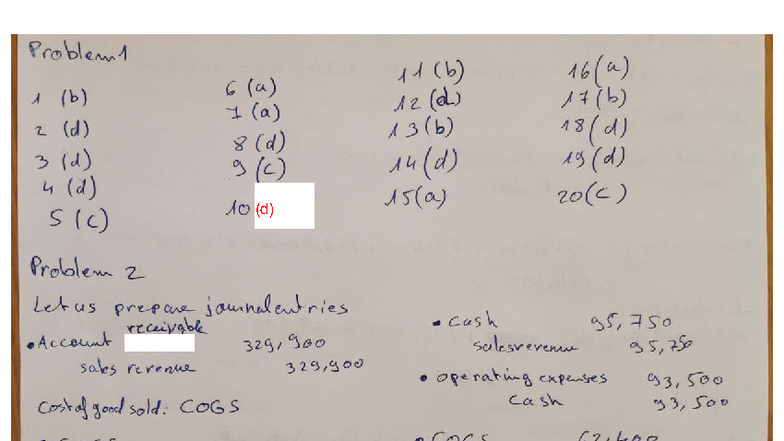 Problem 1
1 (b)
2 (d)
3 (d)
4 (d)
5 (c)
6 (a)
7 (a)
8 (d)
9 (c)
10 (d)
11 (b)
12 (d)
13 (b)
14 (d)
15 (a)
16 (a)
17 (b)
18 (d)
19 (d)
20 (c)
Problem 2
Let us prepare journal entries
• Account receivable 329,900
sales revenue 329,900
Cost of good sold: COGS
• Cash 95,750
sales revenue 95,750
• operating expenses 93,500
Cash 93,500